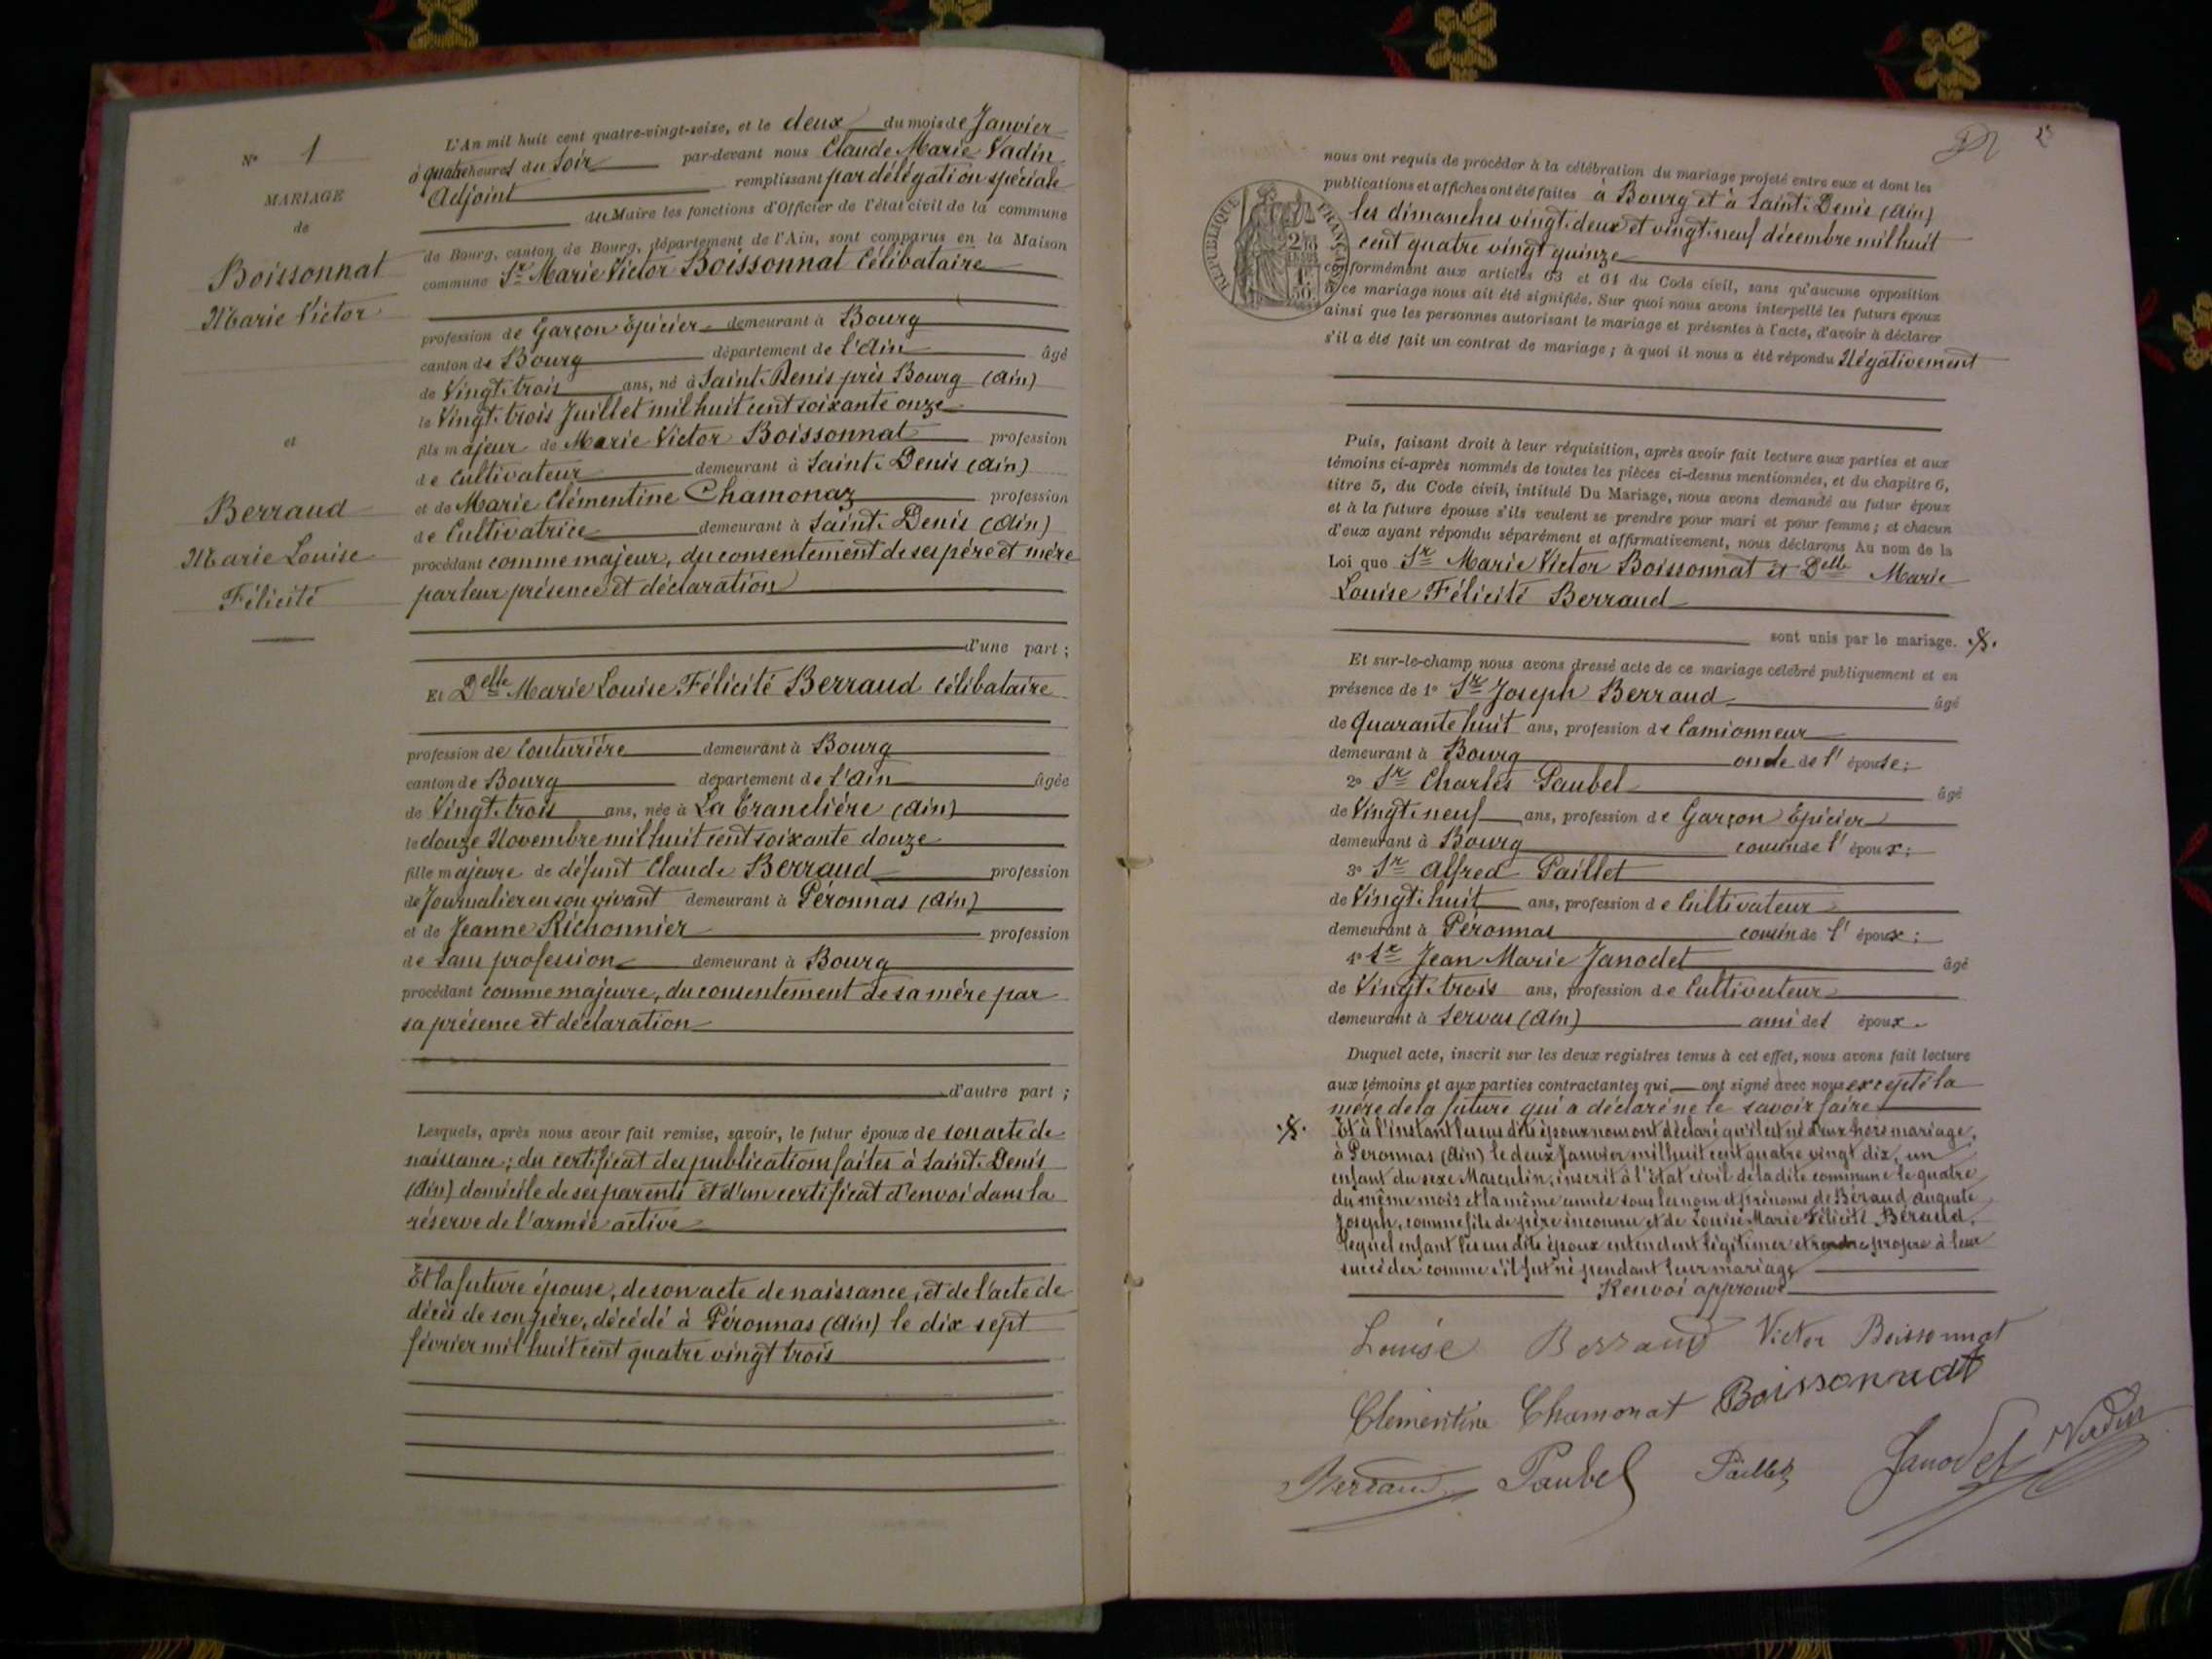 N° 1
MARIAGE
de
Boissonnat
Marie Victor
et
Berraud
Marie Louise
Félicité
L'An mil huit cent quatre-vingt-seize, et le deux du mois de Janvier
à quatre heures du Soir par-devant nous Claude Marie Vadin
Adjoint remplissant par délégation spéciale
du Maire les fonctions d'Officier de l'état civil de la commune
de Bourg, canton de Bourg, département de l'Ain, sont comparus en la Maison
commune Sr Marie Victor Boissonnat Célibataire
profession de Garçon Epicier demeurant à Bourg
canton de Bourg département de l'Ain âgé
de Vingt-trois ans, né à Saint-Denis près Bourg (Ain)
le Vingt-trois Juillet mil huit cent soixante onze
fils majeur de Marie Victor Boissonnat profession
de Cultivateur demeurant à Saint-Denis (Ain)
et de Marie Clémentine Chamonaz profession
de Cultivatrice demeurant à Saint-Denis (Ain)
procédant comme majeur, du consentement de ses père et mère
par leur présence et déclaration
d'une part ;
Et Delle Marie Louise Félicité Berraud Célibataire
profession de Couturière demeurant à Bourg
canton de Bourg département de l'Ain âgée
de Vingt-trois ans, née à La Tranclière (Ain)
le douze Novembre mil huit cent soixante douze
fille majeure de défunt Claude Berraud profession
de Journalier en son vivant demeurant à Péronnas (Ain)
et de Jeanne Richonnier profession
de Sans profession demeurant à Bourg
procédant comme majeure, du consentement de sa mère par
sa présence et déclaration
d'autre part ;
Lesquels, après nous avoir fait remise, savoir, le futur époux de son acte de
naissance ; du certificat des publications faites à Saint-Denis
(Ain) domicile de ses parents et d'un certificat d'envoi dans la
réserve de l'armée active
Et la future épouse, de son acte de naissance, et de l'acte de
décès de son père, décédé à Péronnas (Ain) le dix sept
février mil huit cent quatre vingt trois
2
RÉPUBLIQUE FRANÇAISE
nous ont requis de procéder à la célébration du mariage projeté entre eux et dont les
publications et affiches ont été faites à Bourg et à Saint-Denis (Ain)
les dimanches vingt-deux et vingt-neuf décembre mil huit
cent quatre vingt quinze
conformément aux articles 63 et 64 du Code civil, sans qu'aucune opposition
à ce mariage nous ait été signifiée. Sur quoi nous avons interpellé les futurs époux
ainsi que les personnes autorisant le mariage et présentes à l'acte, d'avoir à déclarer
s'il a été fait un contrat de mariage ; à quoi il nous a été répondu Négativement
Puis, faisant droit à leur réquisition, après avoir fait lecture aux parties et aux
témoins ci-après nommés de toutes les pièces ci-dessus mentionnées, et du chapitre 6,
titre 5, du Code civil, intitulé Du Mariage, nous avons demandé au futur époux
et à la future épouse s'ils veulent se prendre pour mari et pour femme ; et chacun
d'eux ayant répondu séparément et affirmativement, nous déclarons Au nom de la
Loi que Sr Marie Victor Boissonnat et Delle Marie
Louise Félicité Berraud
sont unis par le mariage.
Et sur-le-champ nous avons dressé acte de ce mariage célébré publiquement et en
présence de 1° Sr Joseph Berraud âgé
de Quarante huit ans, profession de Camionneur
demeurant à Bourg oncle de l'épouse ;
2° Sr Charles Paubel âgé
de Vingt-neuf ans, profession de Garçon Epicier
demeurant à Bourg cousin de l'époux ;
3° Sr Alfred Paillet
de Vingt-huit ans, profession de Cultivateur
demeurant à Péronnas cousin de l'époux ;
4° Sr Jean Marie Janodet âgé
de Vingt-trois ans, profession de Cultivateur
demeurant à Servas (Ain) ami des époux.
Duquel acte, inscrit sur les deux registres tenus à cet effet, nous avons fait lecture
aux témoins et aux parties contractantes qui ont signé avec nous excepté la
mère de la future qui a déclaré ne le savoir faire
Et à l'instant les sus dits époux nous ont déclaré qu'il est né d'eux hors mariage,
à Peronnas (Ain) le deux Janvier mil huit cent quatre vingt dix, un
enfant du sexe Masculin, inscrit à l'Etat civil de la dite commune le quatre
du même mois et la même année sous les nom et prénoms de Béraud Auguste
Joseph, comme fils de père inconnu et de Louise Marie Félicité Béraud,
lequel enfant les sus dits époux entendent légitimer et rendre propre à leur
succéder comme s'il fut né pendant leur mariage
Renvoi approuvé
Louise Berraud Victor Boissonnat
Clementine Chamonat Boissonnat
Berraud Paubel Paillet Janodet Vadin